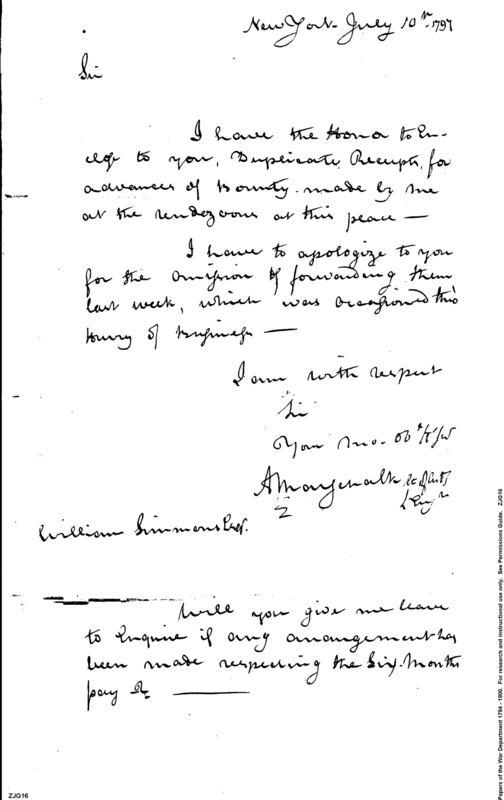 New York July 10th 1797
Sir
I have the Honor to En-
close to you, Duplicate Receipts, for
advances of Bounty made by me
at the rendezvous at this peace —
I have to apologize to you
for the omission of forwarding them
last week, which was occasioned thro
Hurry of Business —
I am with respect
Sir
Your mo. Obt
A Marschalk
William Simmons Esqr.
Will you give me leave
to Enquire if any arrangement has
been made respecting the Six Months
pay &c ———
ZJG16
Papers of the War Department 1784 - 1800. For research and instructional use only. See Permissions Guide. ZJG16